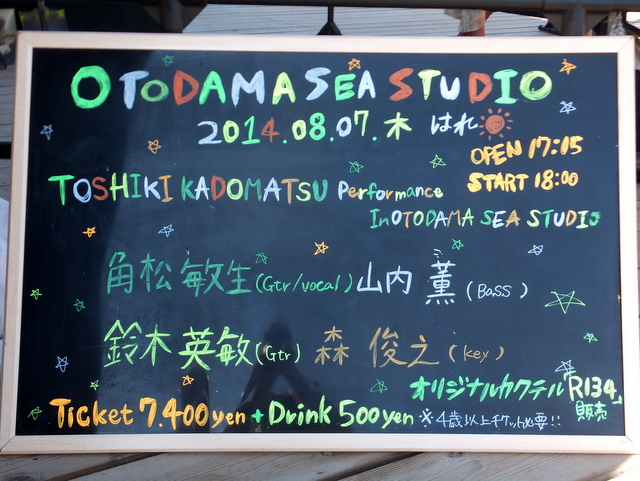 OTODAMA SEA STUDIO
2014.08.07.木 はれ
OPEN 17:15
START 18:00
TOSHIKI KADOMATSU Performance
In OTODAMA SEA STUDIO
角松 敏生(Gtr/vocal) 山内 薫(Bass)
鈴木 英敏(Gtr) 森 俊之(key)
オリジナルカクテル「R134」
販売
Ticket 7.400yen + Drink 500yen ※4歳以上チケット必要!!